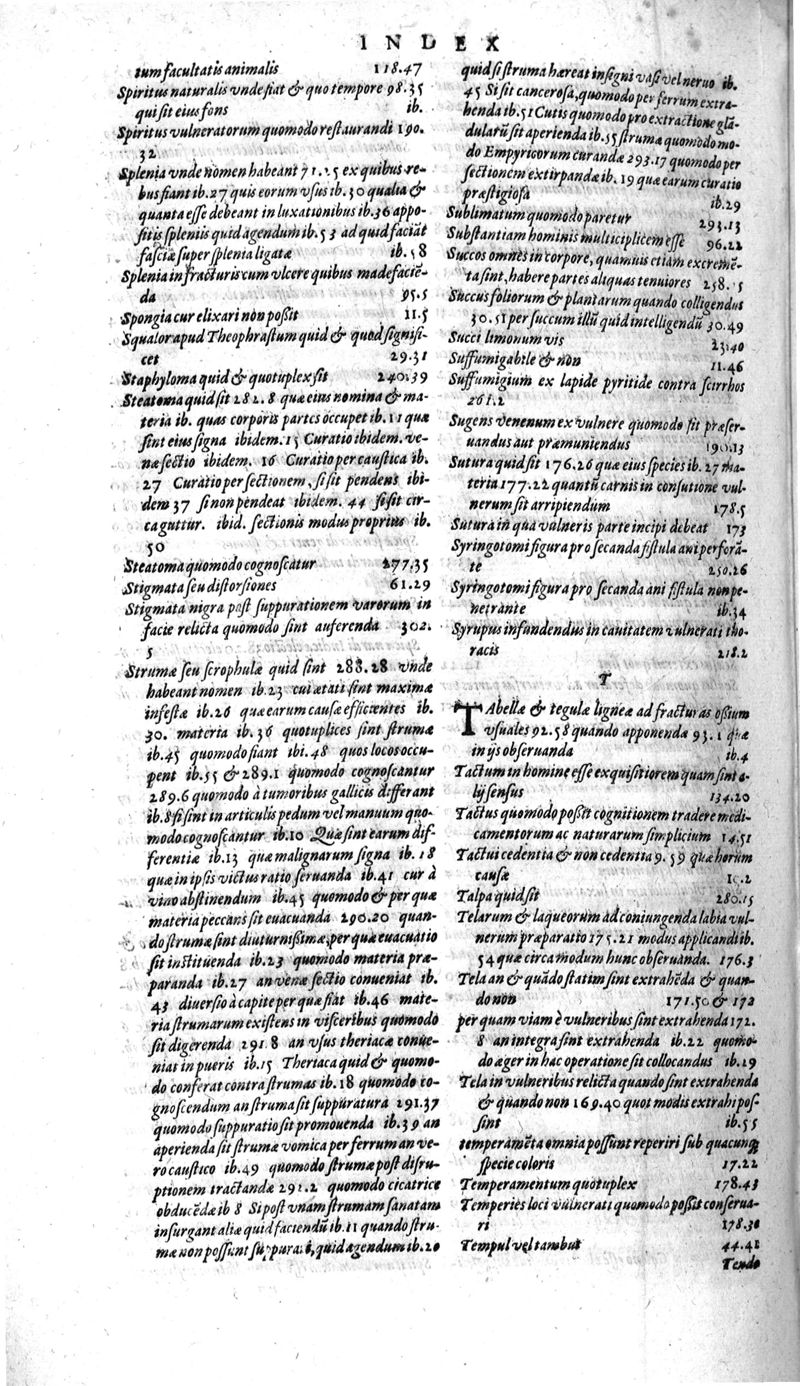 INDEX
tum facultatis animalis 118.47
Spiritus naturalis vnde fiat & quo tempore 98.35
qui sit eius fons ib.
Spiritus vulneratorum quomodo restaurandi 190.
32
Splenia vnde nomen habeant 71.25 ex quibus re-
bus fiant ib.27 quis eorum vsus ib.30 qualia &
quanta esse debeant in luxationibus ib.36 appo-
sitis spleniis quid agendum ib.53 ad quid faciāt
fasciæ super splenia ligatæ ib.58
Splenia in fracturis cum vlcere quibus madefaciē-
da 95.5
Spongia cur elixari non poßit 11.5
Squalor apud Theophrastum quid & quod signifi-
cet 29.31
Staphyloma quid & quotuplex sit 240.39
Steatoma quid sit 282.8 quæ eius nomina & ma-
teria ib. quas corporis partes occupet ib.11 quæ
sint eius signa ibidem.15 Curatio ibidem. ve-
næ sectio ibidem. 16 Curatio per caustica ib.
27 Curatio per sectionem, si sit pendens ibi-
dem 37 si non pendeat ibidem. 44 si sit cir-
ca guttur. ibid. sectionis modus proprius ib.
50
Steatoma quomodo cognoscatur 277.35
Stigmata seu distorsiones 61.29
Stigmata nigra post suppurationem varorum in
facie relicta quomodo sint auferenda 302.
5
Strumæ seu scrophulæ quid sint 288.28 vnde
habeant nomen ib.23 cui ætati sint maximæ
infestæ ib.26 quæ earum causæ efficientes ib.
30. materia ib.36 quotuplices sint strumæ
ib.45 quomodo fiant ibi.48 quos locos occu-
pent ib.55 & 289.1 quomodo cognoscantur
289.6 quomodo à tumoribus gallicis differant
ib.8 si sint in articulis pedum vel manuum quo-
modo cognoscantur ib.10 Quæ sint earum dif-
ferentiæ ib.13 quæ malignarum signa ib.18
quæ in ipsis victus ratio seruanda ib.41 cur à
vino abstinendum ib.45 quomodo & per quæ
materia peccans sit euacuanda 290.20 quan-
do strumæ sint diuturnißimæ, per quæ euacuatio
sit instituenda ib.23 quomodo materia præ-
paranda ib.27 an venæ sectio conueniat ib.
43 diuersio à capite per quæ fiat ib.46 mate-
ria strumarum existens in visceribus quomodo
sit digerenda 291.8 an vsus theriacæ conue-
niat in pueris ib.15 Theriaca quid & quomo-
do conferat contra strumas ib.18 quomodo co-
gnoscendum an struma sit suppurata 291.37
quomodo suppuratio sit promouenda ib.39 an
aperienda sit strumæ vomica per ferrum an ve-
ro caustico ib.49 quomodo strumæ post disru-
ptionem tractandæ 292.2 quomodo cicatrice
obducēdæ ib 8 Si post vnam strumam sanatam
insurgant aliæ quid faciendū ib.11 quando stru-
mæ non possunt suppurari, quid agendum ib.20
quid si struma hæreat insigni vasi vel neruo ib.
45 Si sit cancerosa, quomodo per ferrum extra-
henda ib.51 Cutis quomodo pro extractione glā-
dularū sit aperienda ib.55 strumæ quomodo mo-
do Empyricorum curandæ 293.17 quomodo per
sectionem extirpandæ ib.19 quæ earum curatio
præstigiosa ib.29
Sublimatum quomodo paretur 293.13
Substantiam hominis multiciplicem esse 96.22
Succos omnes in corpore, quamuis etiam excremē-
ta sint, habere partes aliquas tenuiores 258.5
Succus foliorum & plantarum quando colligendus
30.51 per succum illū quid intelligendū 30.49
Succi limonum vis 23.40
Suffumigabile & non 11.46
Suffumigium ex lapide pyritide contra scirrhos
261.2
Sugens venenum ex vulnere quomodo sit præser-
uandus aut præmuniendus 190.13
Sutura quid sit 176.26 quæ eius species ib.27 ma-
teria 177.22 quantū carnis in consutione vul-
nerum sit arripiendum 178.5
Sutura in qua vulneris parte incipi debeat 173
Syringotomi figura pro secanda fistula ani perforā-
te 250.26
Syringotomi figura pro secanda ani fistula non pe-
netrante ib.34
Syrupus infundendus in cauitatem vulnerati tho-
racis 218.2
T
TAbellæ & tegulæ ligneæ ad fracturas oßium
vsuales 92.58 quando apponendæ 93.1 quæ
in ijs obseruanda ib.4
Tactum in homine esse exquisitiorem quam sint a-
lij sensus 134.20
Tactus quomodo poßit cognitionem tradere medi-
camentorum ac naturarum simplicium 14.51
Tactui cedentia & non cedentia 9.59 quæ horum
causæ 10.2
Talpa quid sit 280.15
Telarum & laqueorum ad coniungenda labia vul-
nerum præparatio 175.21 modus applicandi ib.
54 quæ circa modum hunc obseruanda. 176.3
Tela an & quādo statim sint extrahēda & quan-
do non 171.50 & 172
per quam viam è vulneribus sint extrahenda 172.
8 an integra sint extrahenda ib.22 quomo-
do æger in hac operatione sit collocandus ib.29
Tela in vulneribus relicta quando sint extrahenda
& quando non 169.40 quot modis extrahi pos-
sint ib.55
temperamēta omnia possunt reperiri sub quacunq;
specie coloris 17.22
Temperamentum quotuplex 178.43
Temperies loci vulnerati quomodo poßit conserua-
ri 178.30
Tempul vel tambul 44.41
Tendo